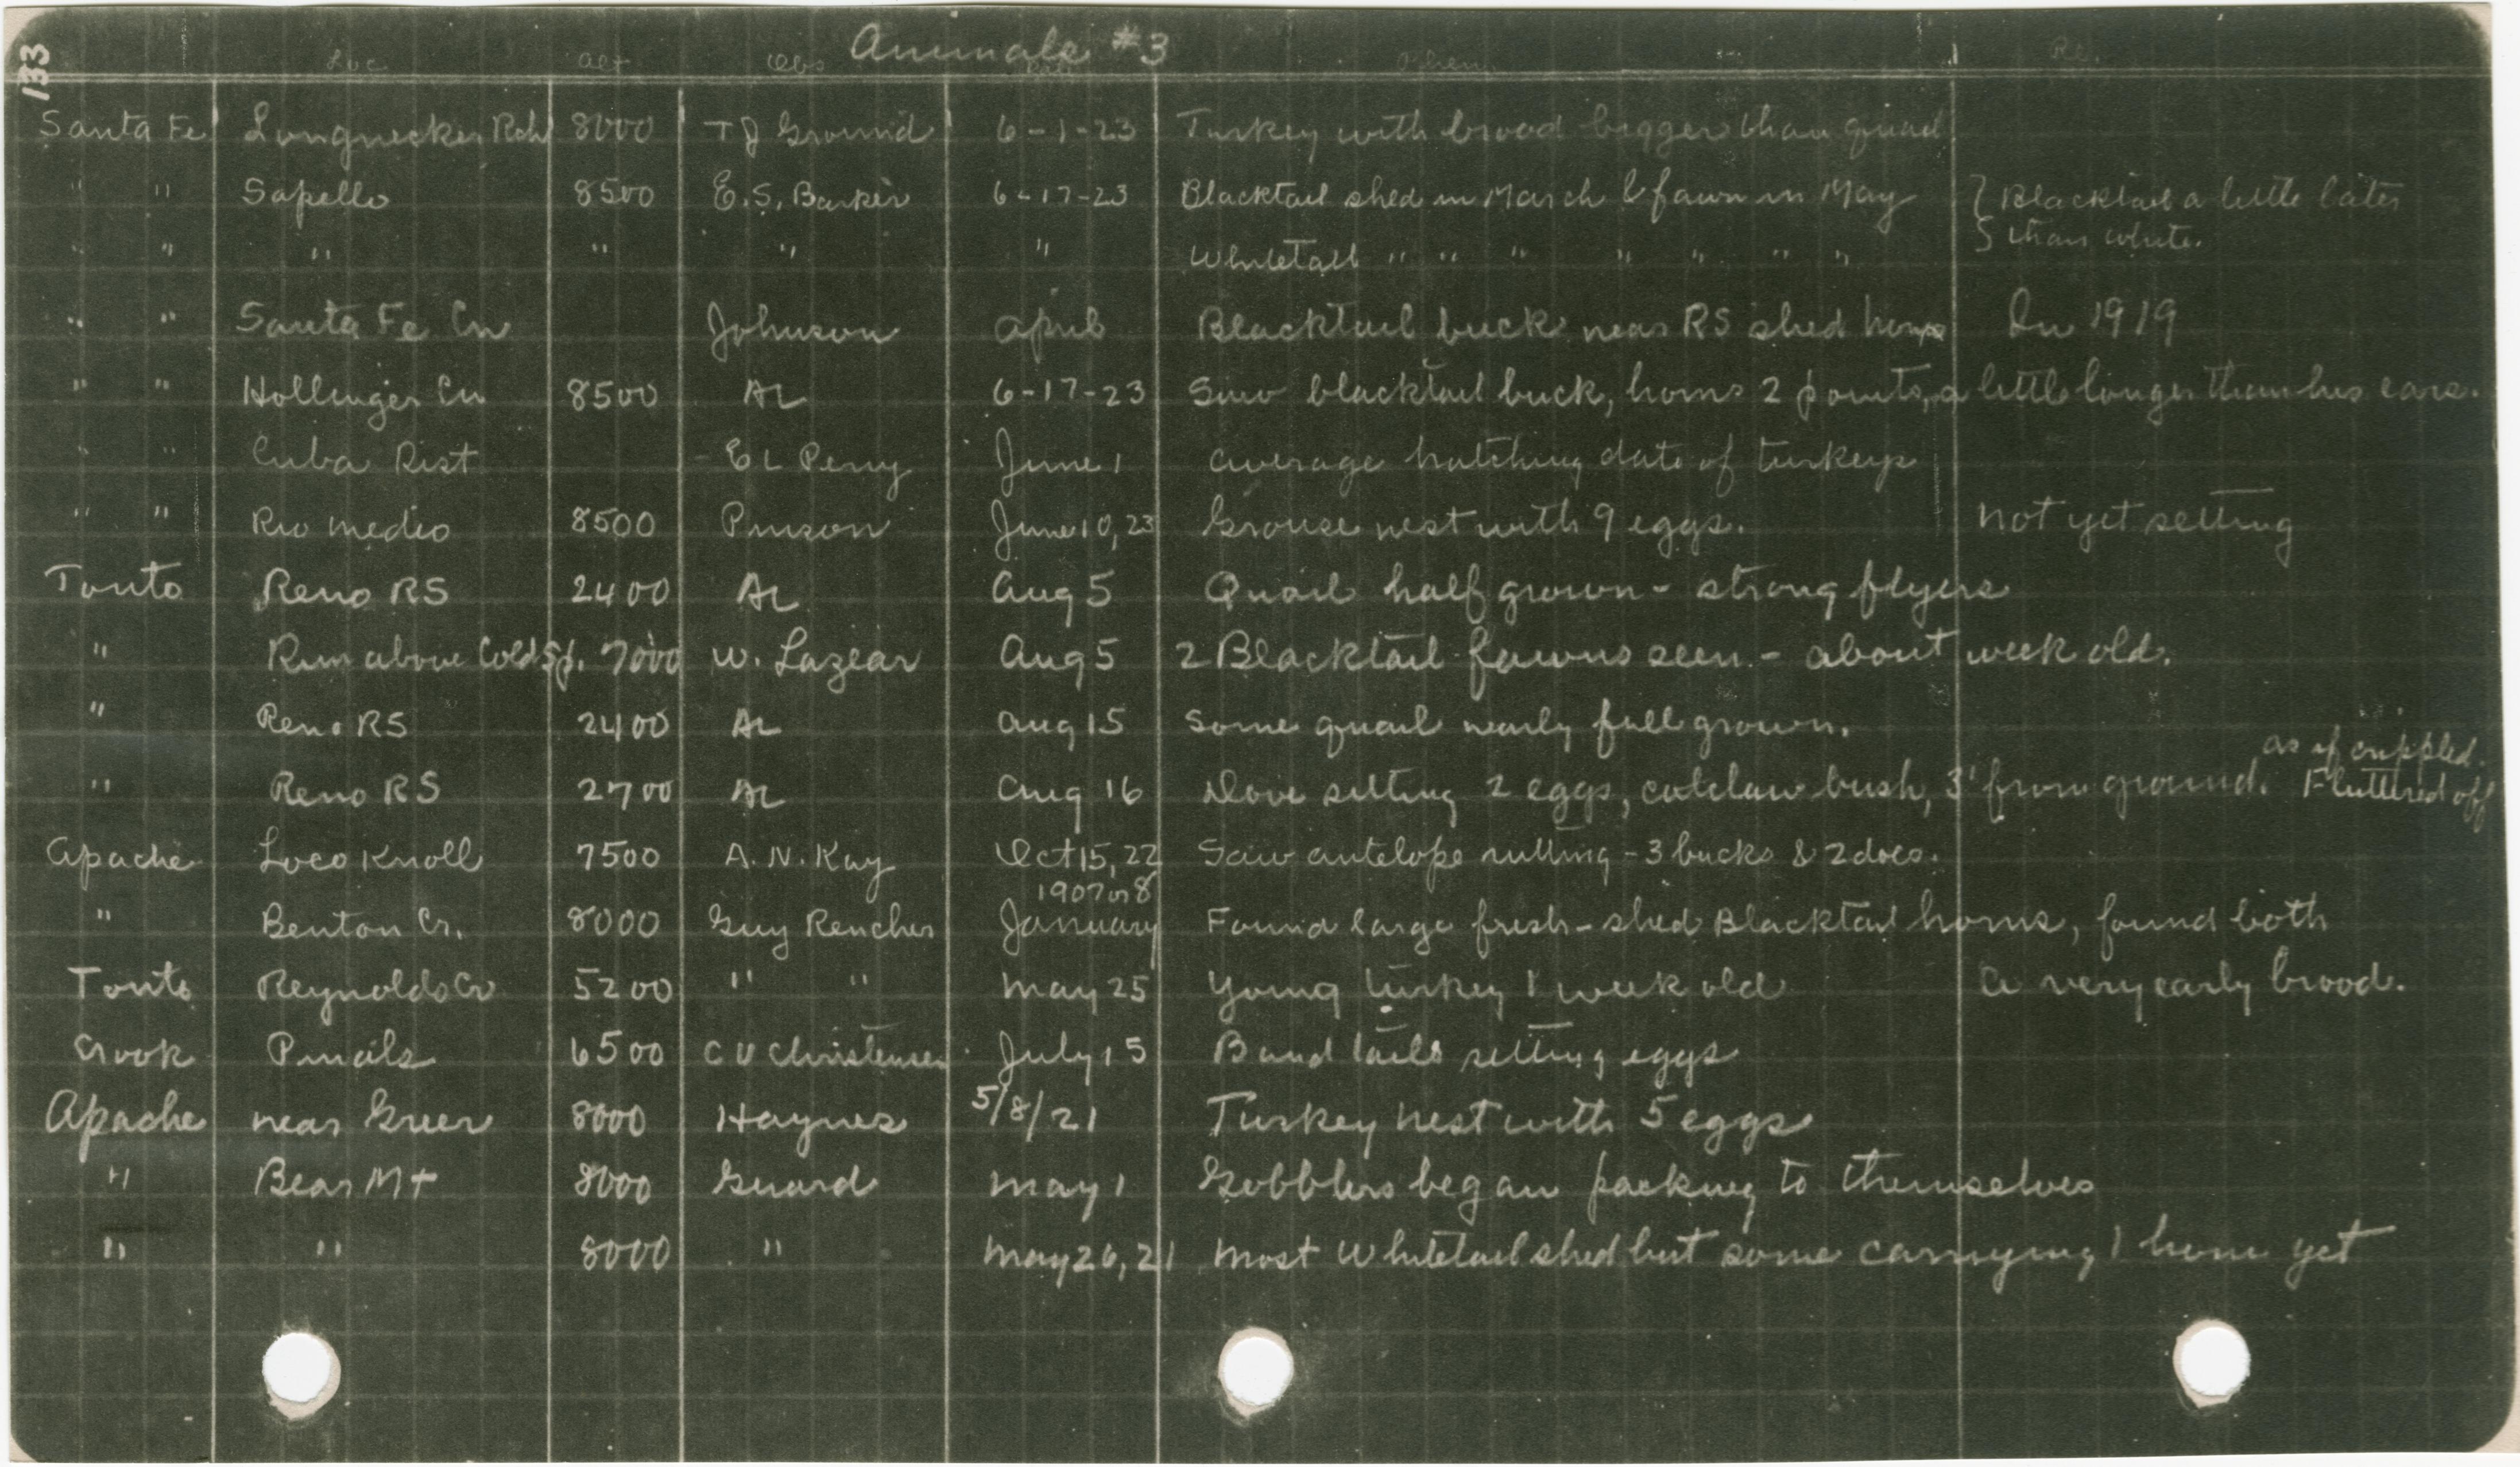 133
Animals #3
Loc Alt Obs Date Phen. Re.
Santa Fe Longnecker Rch 8000 T J Ground 6-1-23 Turkey with brood bigger than quail
" " Sapello 8500 E.S. Barker 6-17-23 Blacktail shed in March & fawn in May } Blacktail a little later
" " " " " " Whitetail " " " " " " " than white.
" " Santa Fe Cn Johnson April Blacktail buck near RS shed horns In 1919
" " Hollinger Cn 8500 AL 6-17-23 Saw blacktail buck, horns 2 points, a little longer than his ears.
" " Cuba Dist E L Perry June 1 average hatching date of turkeys
" " Rio medio 8500 Pinson June 10, 23 Grouse nest with 9 eggs. not yet setting
Tonto Reno RS 2400 AL Aug 5 Quail half grown - strong flyers
" Rim above Cold Sp. 7000 W. Lazear Aug 5 2 Blacktail fawns seen - about week old.
" Reno RS 2400 AL Aug 15 Some quail nearly full grown.
" Reno RS 2700 AL Aug 16 Dove setting 2 eggs, catclaw bush, 3' from ground. Fluttered off
as if crippled.
Apache Loco Knoll 7500 A. N. Kay Oct 15, 22 Saw antelope rutting - 3 bucks & 2 does.
1907 or 8
" Benton Cr. 8000 Guy Rencher January Found large fresh-shed Blacktail horns, found both
Tonto Reynolds Cr 5200 " " May 25 Young turkey 1 week old A very early brood.
Crook Pinals 6500 C U Christensen July 15 Band tails setting eggs
Apache near Greer 8000 Haynes 5/8/21 Turkey nest with 5 eggs
" Bear Mt 8000 Guard May 1 Gobblers began packing to themselves
" " 8000 " May 26, 21 Most Whitetail shed but some carrying 1 horn yet